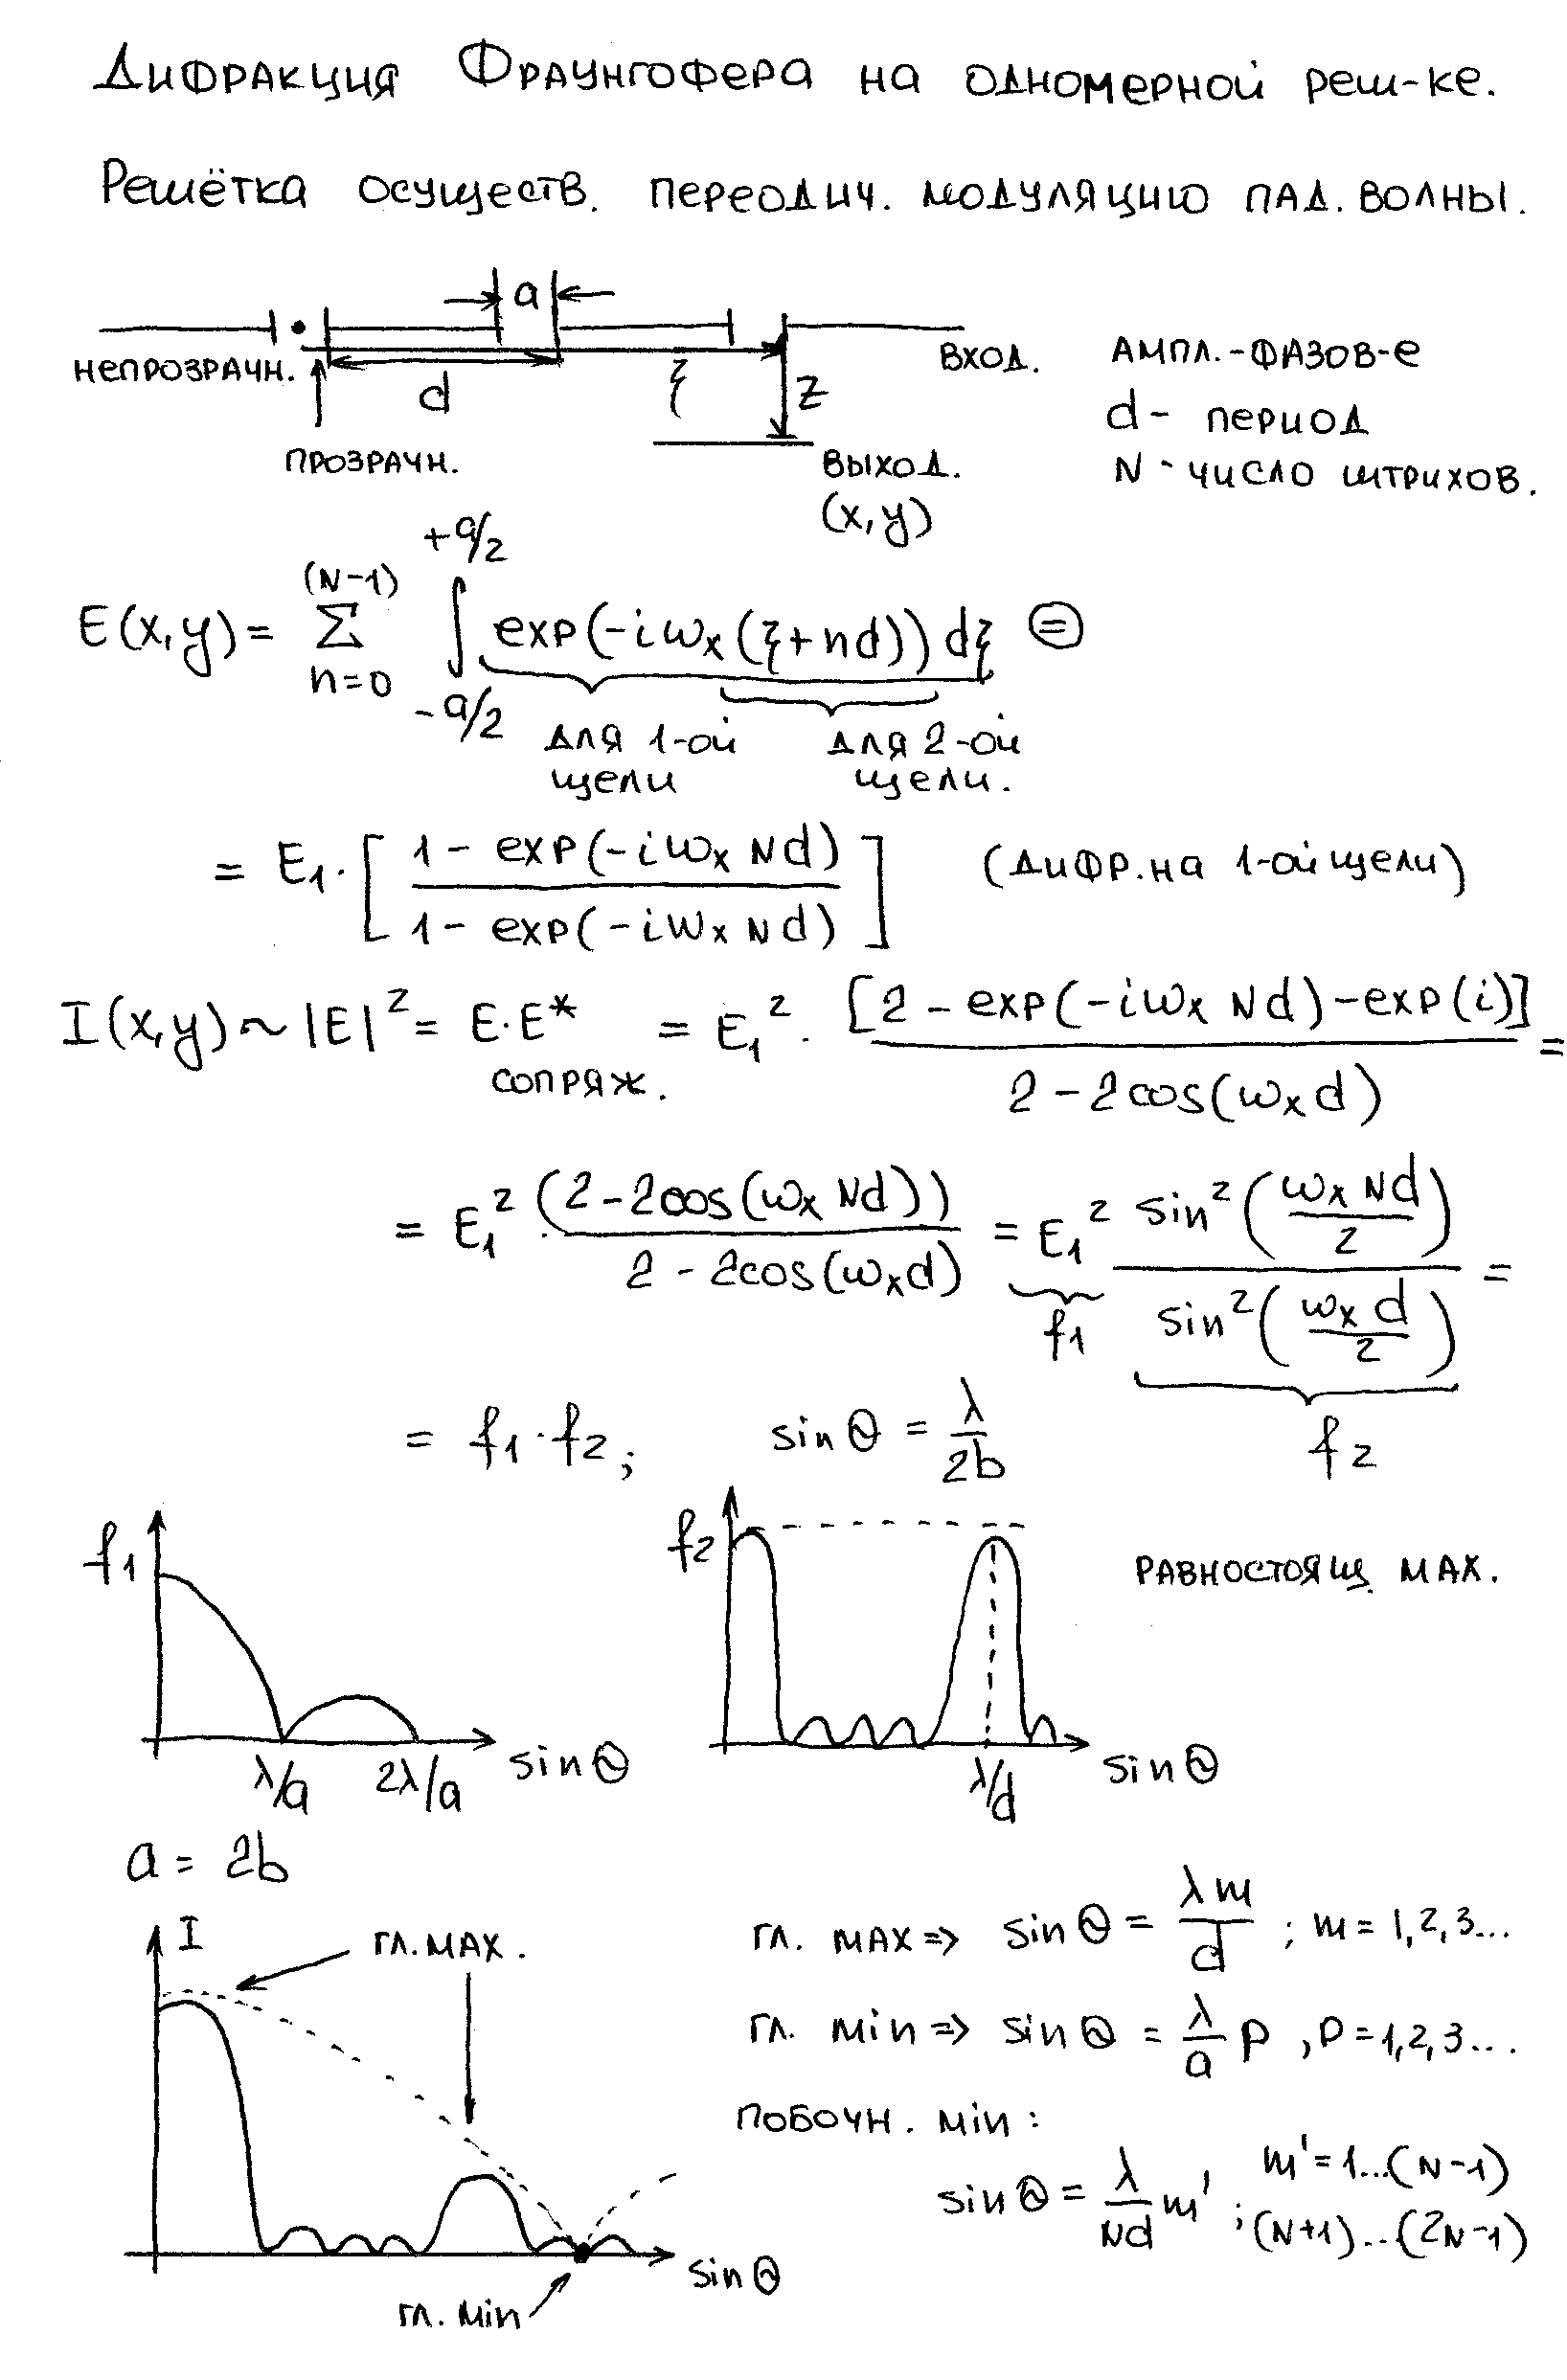 Дифракция Фраунгофера на одномерной реш-ке.
Решётка осуществ. переодич. модуляцию пад. волны.
a
непрозрачн.
d
ξ
z
вход.
прозрачн.
выход.
(x,y)
ампл.-фазов-е
d - период
N - число штрихов.
E(x,y) = Σ_{n=0}^{(N-1)} ∫_{-a/2}^{+a/2} exp(-iω_x(ξ+nd))dξ ⊜
для 1-ой щели
для 2-ой щели.
= E₁·[(1 - exp(-iω_x Nd))/(1 - exp(-iω_x Nd))] (дифр. на 1-ой щели)
I(x,y) ~ |E|² = E·E* = E₁² · [2 - exp(-iω_x Nd) - exp(i)]/(2 - 2cos(ω_x d)) =
сопряж.
= E₁² · (2 - 2cos(ω_x Nd))/(2 - 2cos(ω_x d)) = E₁² sin²(ω_x Nd/2)/sin²(ω_x d/2) =
f₁
f₂
= f₁·f₂; sinΘ = λ/2b
f₁
λ/a
2λ/a
sinΘ
f₂
λ/d
sinΘ
равностоящ. max.
a = 2b
I
гл. max.
sinΘ
гл. min
гл. max => sinΘ = λm/d ; m = 1,2,3...
гл. min => sinΘ = λ/a p , p = 1,2,3...
побочн. min :
sinΘ = λ/Nd m' ; m' = 1...(N-1)
(N+1)...(2N-1)